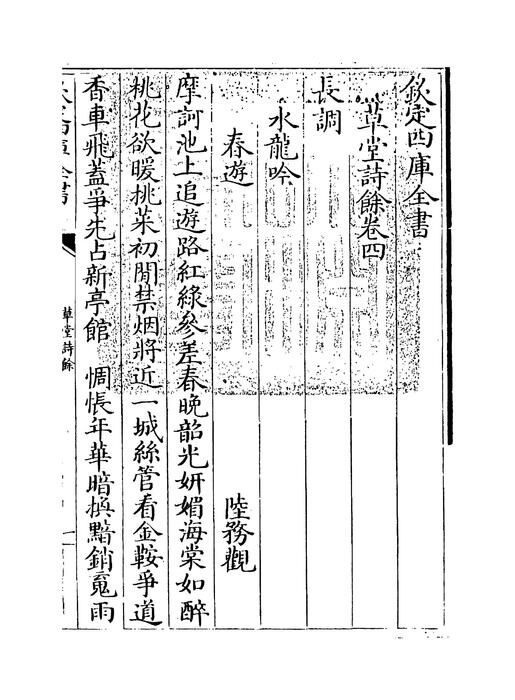 欽定四庫全書
草堂詩餘卷四
長調
水龍吟
春遊　陸務觀
摩訶池上追遊路紅綠參差春晚韶光妍媚海棠如醉
桃花欲暖挑菜初閒禁烟將近一城絲管看金鞍爭道
香車飛蓋爭先占新亭館　惆悵年華暗換黯銷䰟雨
欽定四庫全書
草堂詩餘
一